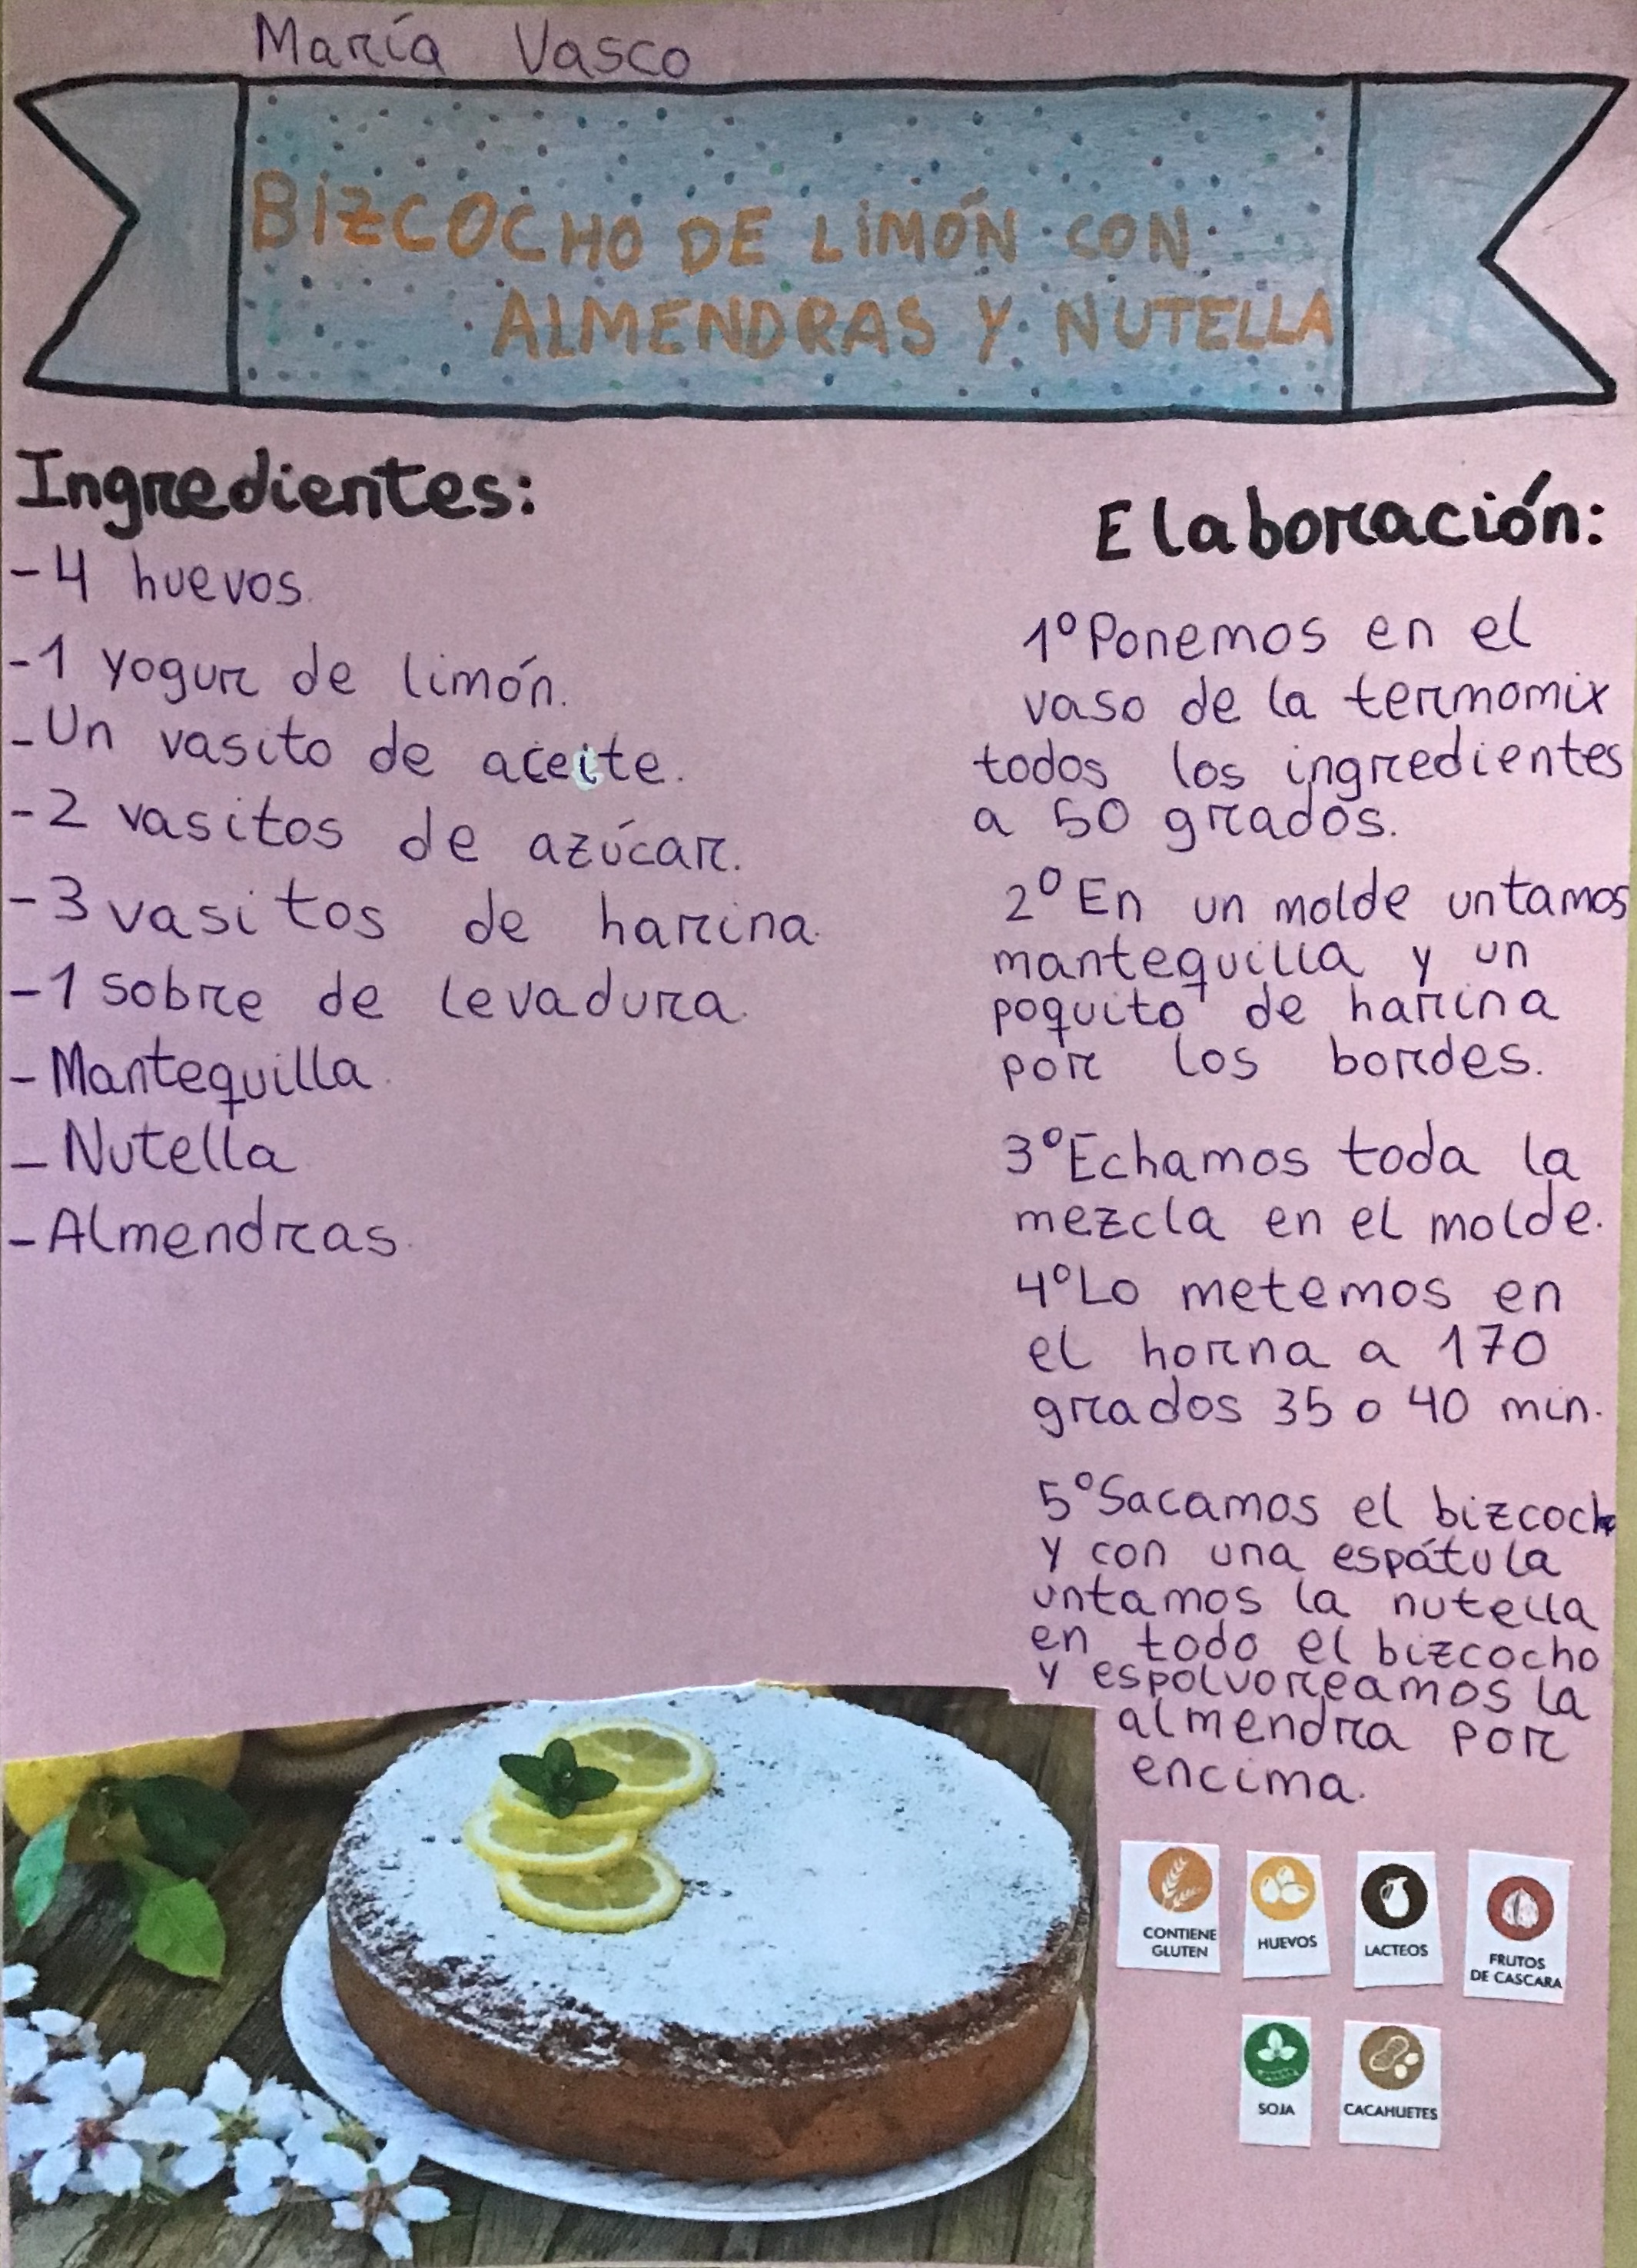 María Vasco
BIZCOCHO DE LIMÓN CON
ALMENDRAS Y NUTELLA
Ingredientes:
-4 huevos.
-1 yogur de limón.
-Un vasito de aceite.
-2 vasitos de azúcar.
-3 vasitos de harina.
-1 sobre de levadura.
-Mantequilla.
-Nutella
-Almendras.
Elaboración:
1º Ponemos en el
vaso de la termomix
todos los ingredientes
a 50 grados.
2º En un molde untamos
mantequilla y un
poquito de harina
por los bordes.
3º Echamos toda la
mezcla en el molde.
4º Lo metemos en
el horna a 170
grados 35 o 40 min.
5º Sacamos el bizcocho
y con una espátula
untamos la nutella
en todo el bizcocho
y espolvoreamos la
almendra por
encima.
CONTIENE
GLUTEN
HUEVOS
LACTEOS
FRUTOS
DE CASCARA
SOJA
CACAHUETES